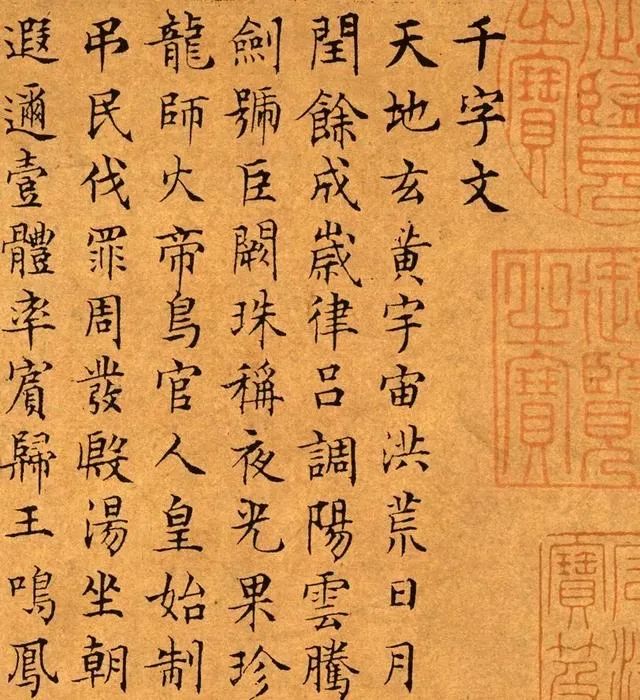 千字文
天地玄黄宇宙洪荒日月
閏餘成歲律呂調陽雲騰
劍號巨闕珠稱夜光果珍
龍師火帝鳥官人皇始制
吊民伐罪周發殷湯坐朝
遐邇壹體率賓歸王鳴鳳